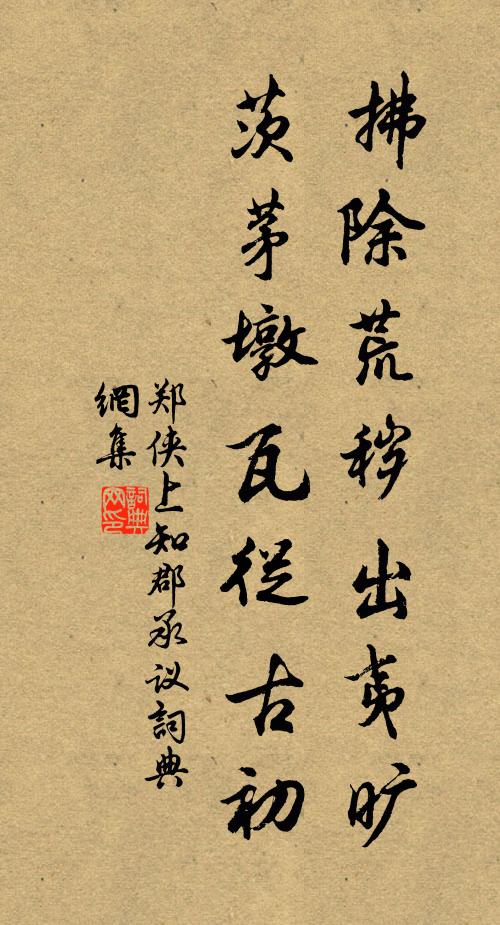 拂除荒秽出夷旷
茨茅墩瓦從古初
郑侠上知郡承议詞典
網集
詞典网印